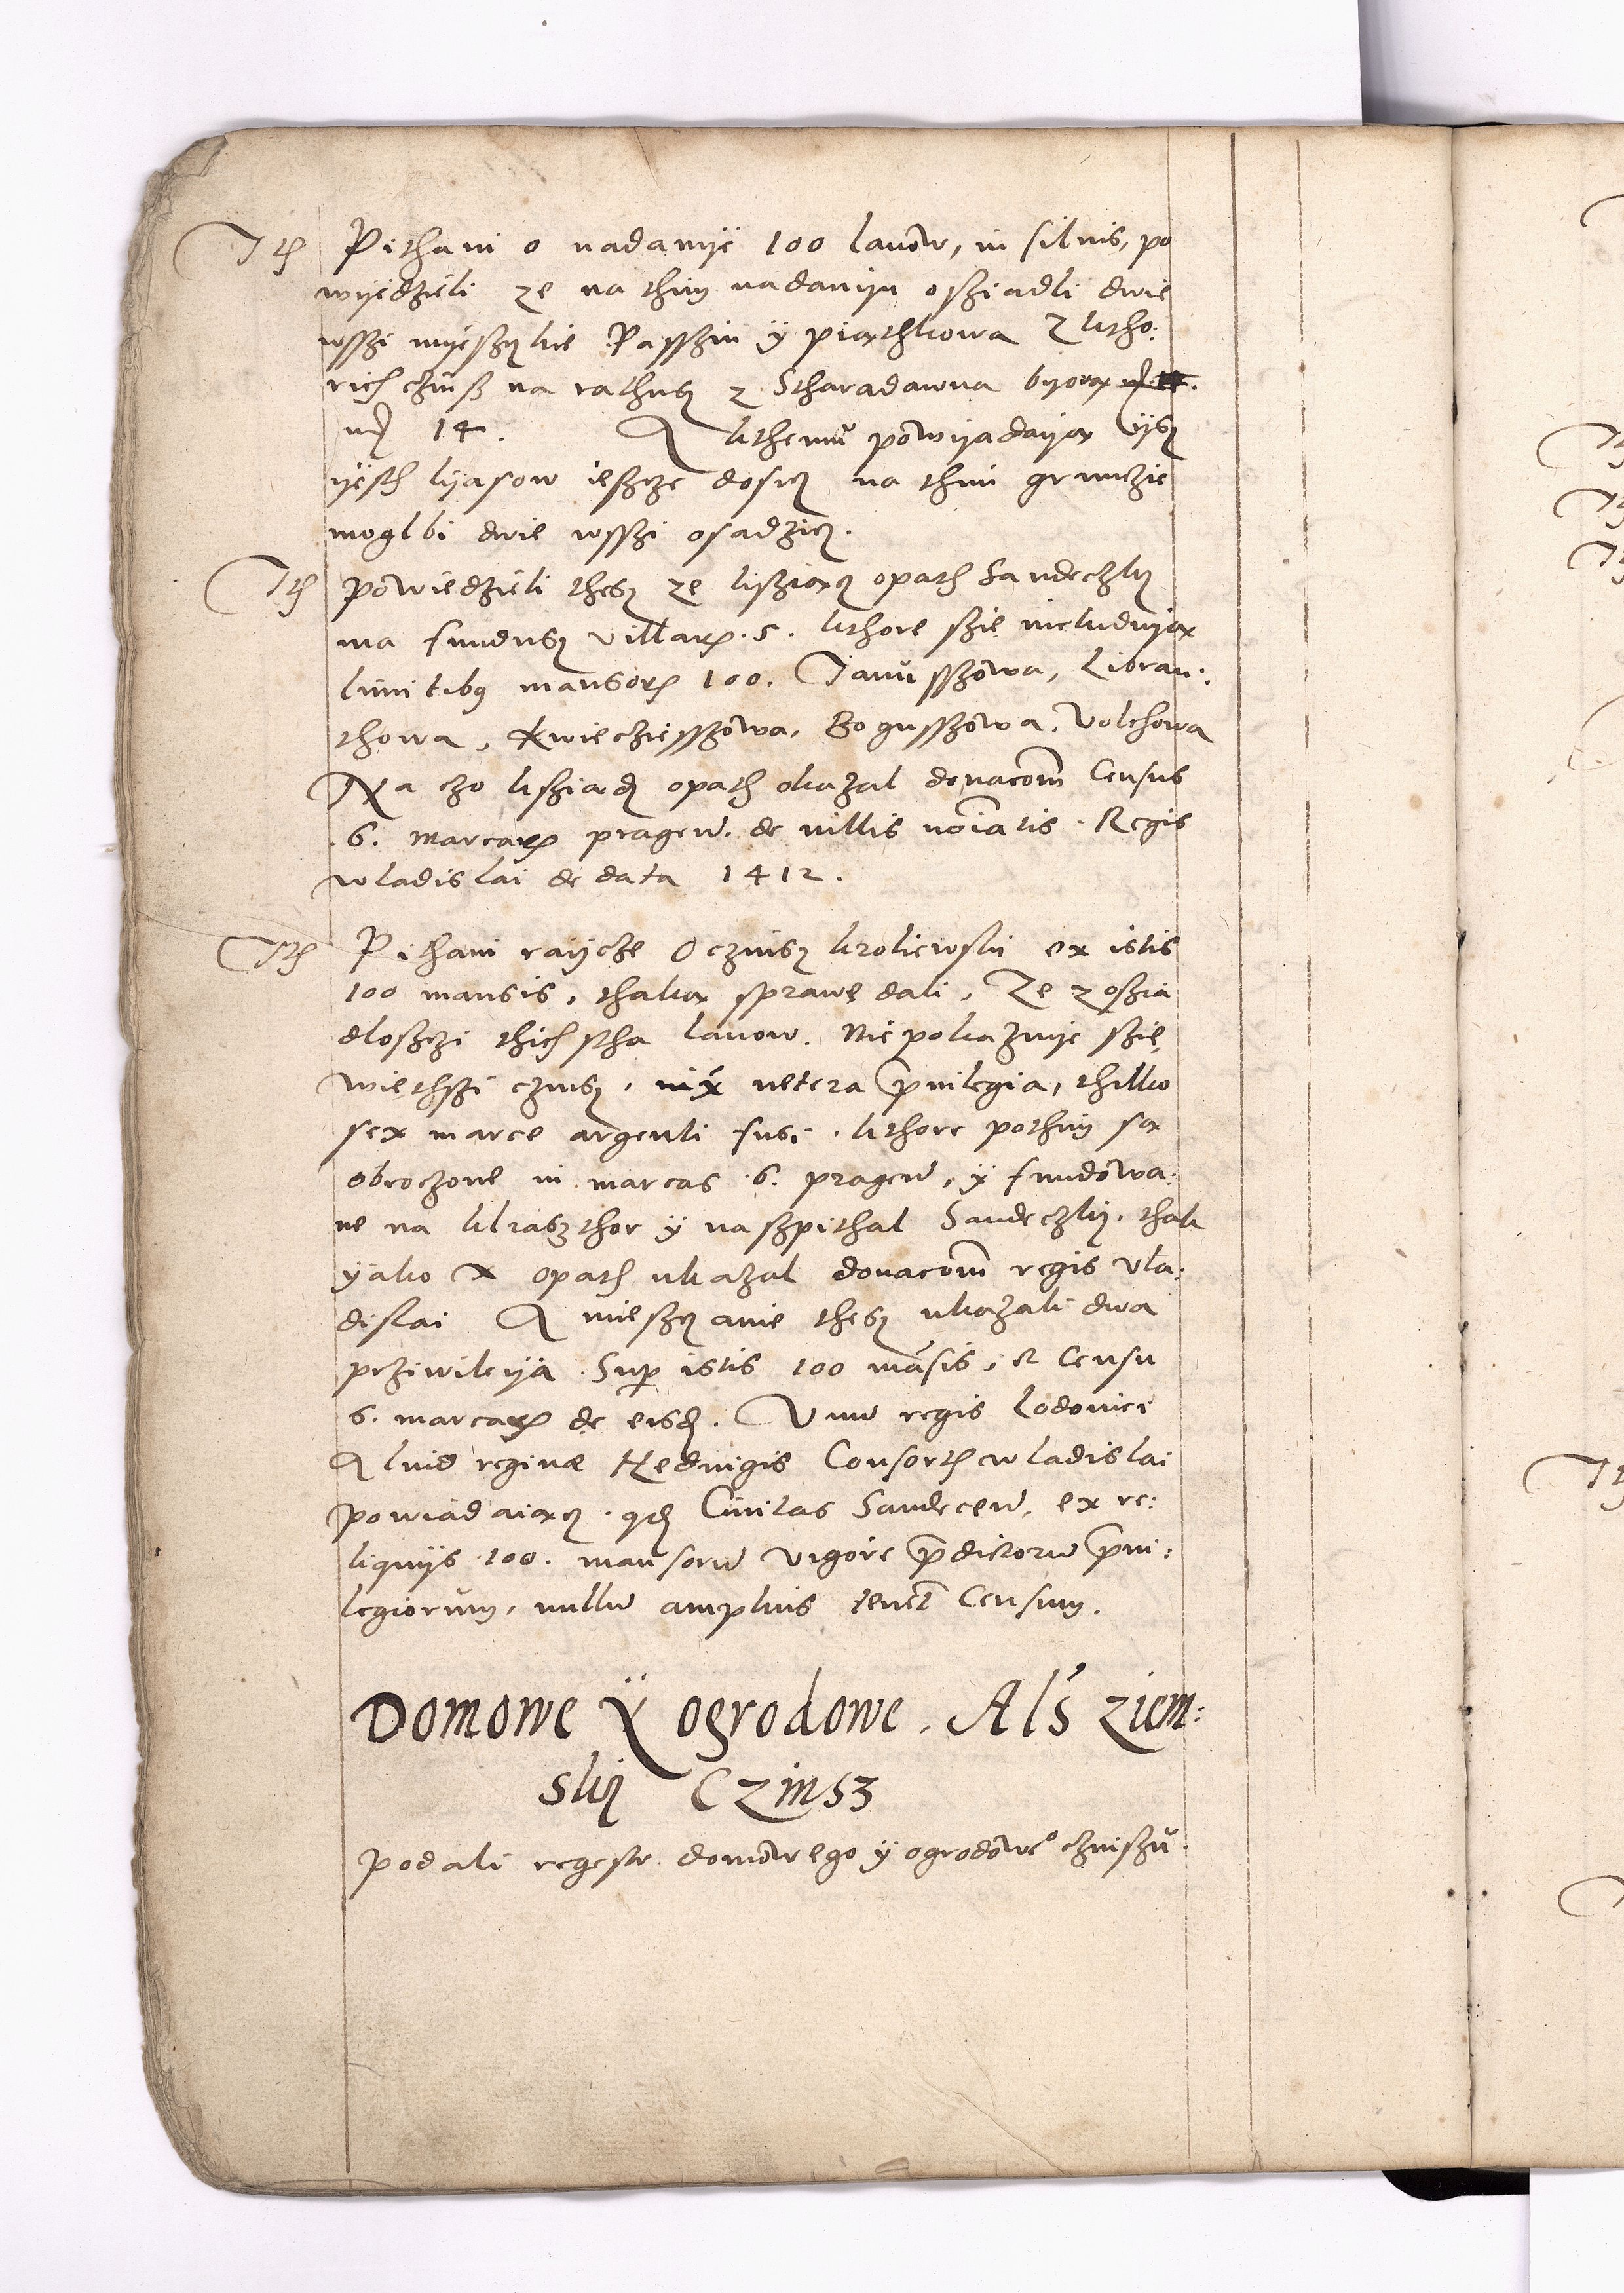 Ith Pithani o nadanÿe 100 lanow, in siluis, po
wÿedzieli ze na thim nadanyu osziadli dwie
wsszi myesczkie Passzin ÿ piąthkowa z ktho:
rich czinsz na rathusz z Stharadawna byorą
mỻ 14. A kthemu powyadayą ÿsz
ÿesth lyasow iescze dosicz na thim gruncie
moglbi dwie wsszi osadzicz.
Ith Powiedzieli thesz ze ksziącz opath Sandeczky
ma fundusz villarum .5. kthore szie includuyą
limitibus mansorum 100. Janusszowa, Libran:
thowa, Kwieciesszowa, Bogusszowa, Volchowa
Na czo ksziądz opath okazal donacom Census
.6. marcarum pragen. de villis noiatis. Regis
wladislai de data 1412.
Ith Pithani raycze O czinsz kroliewski ex istis
100 mansis, thaką sprawe dali, Ze z oszia
dlosczi thich stha lanow. Nie pokazuye szie,
wiethszi czinsz, vetera priuilegia, thilko
sex marce argenti fusi. kthore pothim są
obroczone in marcas .6. pragen, ÿ fundowa:
ne na kliasthor ÿ na szpithal Sandeczky. thak
ÿako X opath ukazal donacom regis Vla:
dislai A miesczanie thesz ukazali dwa
prziwileÿa. Super istis 100 mansis, et Censu
6. marcarum de eisdem. Vnum regis Lodouici
Aliud reginæ Heduigis Consorth wladislai
powiadaiącz. qđ Ciuitas Sandecen, ex re:
liquÿs 100. mansorum vigore predictorum priui:
legiorum, nullum amplius tenet Censum.
Domowe Ÿ ogrodowe. Als ziem:
sky Czinsz
Podali regestr. domowego ÿ ogrodowe° czinszu.